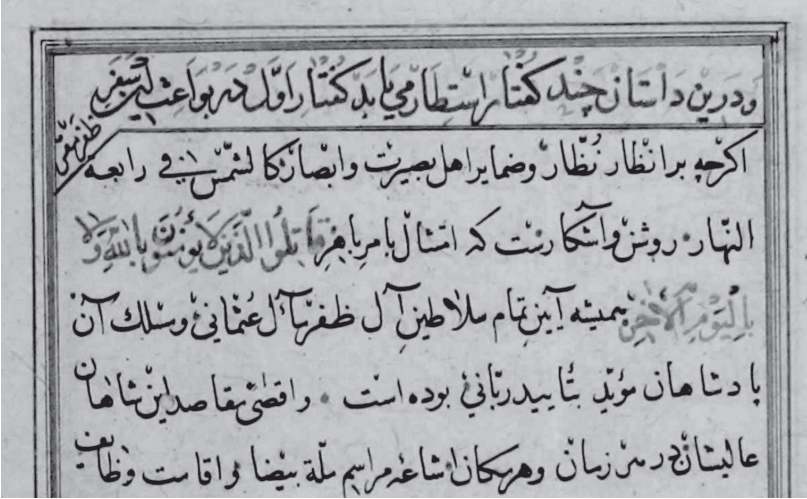 ودرین داستان چند کفتار استطار می یابد کفتار اول در بواعث این سفر
ظفر مقر
اکرچه بر انظار نظار وضمایر اهل بصیرت وابصار کالشمس فی رابعة
النهار روشن وآشکارست که امتثال بامر باهر قاتلوا الذین لا یؤمنون بالله ولا
بالیوم الآخر همیشه آیین تمام سلاطین آل ظفر مآل عثمانی ومسلک آن
پادشاهان مؤید بتأیید ربانی بوده است واقصی مقاصد این شاهان
عالیشان در هر زمان وهر مکان اشاعه مراسم ملة بیضا واقامت وظایف